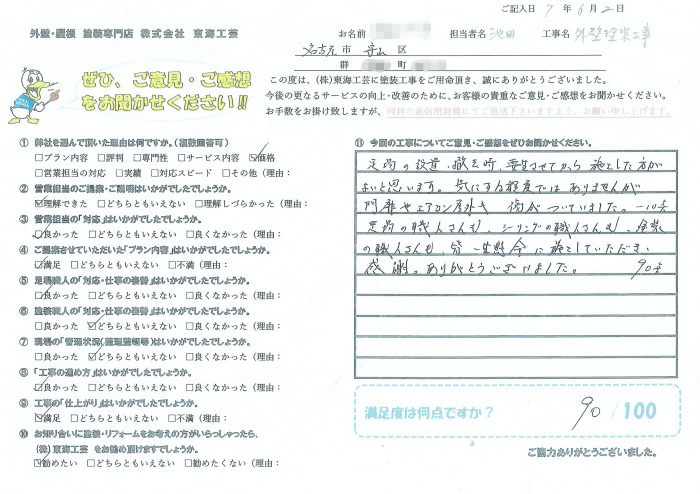 ご記入日 7年 6月 2日
外壁・屋根 塗装専門店 株式会社 東海工芸
お名前 担当者名 池田 工事名 外壁塗装工事
名古屋市 守山区
群 町
ぜひ、ご意見・ご感想
をお聞かせください!!
この度は、(株)東海工芸に塗装工事をご用命頂き、誠にありがとうございました。
今後の更なるサービスの向上・改善のために、お客様の貴重なご意見・ご感想をお聞かせください。
お手数をお掛け致しますが、同封の返信用封筒にてご返送下さいますよう、お願い申し上げます。
① 弊社を選んで頂いた理由は何ですか。(複数回答可)
□プラン内容 □評判 □専門性 □サービス内容 ☑価格
□営業担当の対応 □実績 □対応スピード □その他（理由：
② 営業担当のご提案・ご説明はいかがでしたでしょうか。
☑理解できた □どちらともいえない □理解しづらかった（理由：
③ 営業担当の「対応」はいかがでしたでしょうか。
☑良かった □どちらともいえない □良くなかった（理由：
④ ご提案させていただいた「プラン内容」はいかがでしたでしょうか。
☑満足 □どちらともいえない □不満（理由：
⑤ 足場職人の「対応・仕事の姿勢」はいかがでしたでしょうか。
□良かった □どちらともいえない □良くなかった（理由：
⑥ 塗装職人の「対応・仕事の姿勢」はいかがでしたでしょうか。
□良かった ☑どちらともいえない □良くなかった（理由：
⑦ 現場の「管理状況(整理整頓等)はいかがでしたでしょうか。
☑良かった □どちらともいえない □良くなかった（理由：
⑧ 「工事の進め方」はいかがでしたでしょうか。
☑良かった □どちらともいえない □良くなかった（理由：
⑨ 工事の「仕上がり」はいかがでしたでしょうか。
☑満足 □どちらともいえない □不満（理由：
⑩ お知り合いに塗装・リフォームをお考えの方がいらっしゃったら、
(株)東海工芸 をお勧め頂けますでしょうか。
☑勧めたい □どちらともいえない □勧めたくない（理由：
⑪ 今回の工事についてご意見・ご感想をぜひお聞かせください。
足場の設置、撤去時、養生させてから施工した方が
よいと思います。気にする程度ではありませんが
門扉やエアコン屋外き 傷がついていました。−10点
足場の職人さんも、シーリングの職人さんも、塗装
の職人さんも、皆一生懸命に施工していただき、
感謝。ありがとうございました。 90点
満足度は何点ですか？ 90 /100
ご協力ありがとうございました。